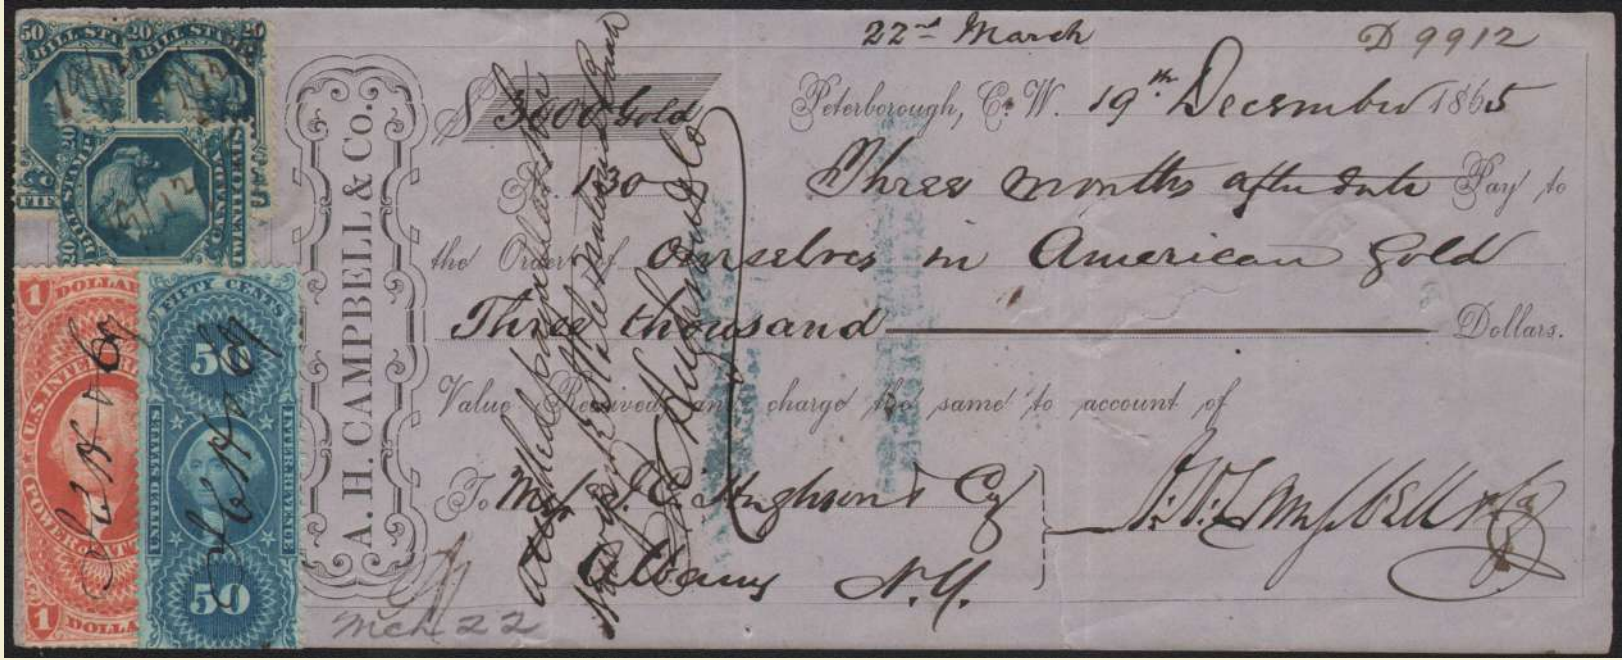 22nd March
D 9912
$ 3000 Gold
Peterborough, C. W. 19th December 1865
130
Three months after date Pay to
the Order of Ourselves in American Gold
Three thousand Dollars.
Value Received and charge the same to account of
To Mess J. C. Hughson & Co
Albany N.Y.
A. H. Campbell & Co
A. H. CAMPBELL & CO.
Mch 22
50 BILL STAMP
20 BILL STAMP 20
19/12
19/12
20 BILL STAMP
CANADA
TWENTY CENTS
19/12
1 DOLLAR
U.S. INTER. REV
POWER OF ATT
1 DOLLAR
FIFTY CENTS
50
UNITED STATES
INTER. REVENUE
50